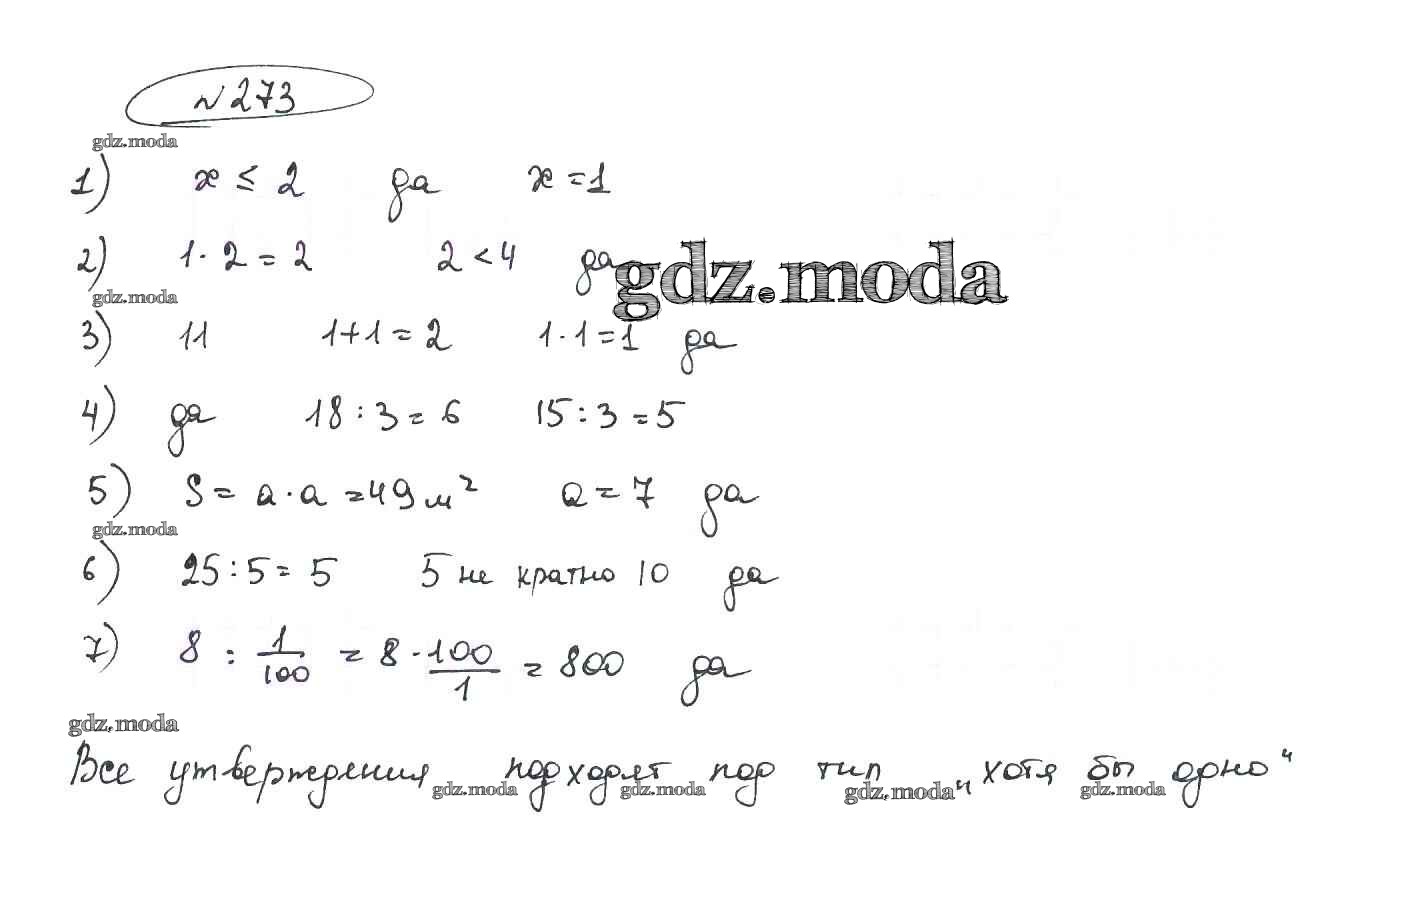 №273
gdz.moda
1) x ≤ 2 да x = 1
2) 1 · 2 = 2 2 < 4 да
gdz.moda
gdz.moda
3) 11 1+1 = 2 1 · 1 = 1 да
4) да 18 : 3 = 6 15 : 3 = 5
5) S = a · a = 49 м² a = 7 да
gdz.moda
6) 25 : 5 = 5 5 не кратно 10 да
7) 8 : 1/100 = 8 · 100/1 = 800 да
gdz.moda
Все утверждения подходят под тип „хотя бы одно“
gdz.moda gdz.moda gdz.moda gdz.moda